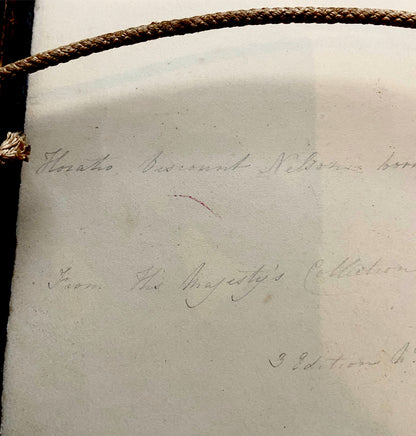 Horatio Viscount Nelson born
From His Majesty's Collection
3 Edition